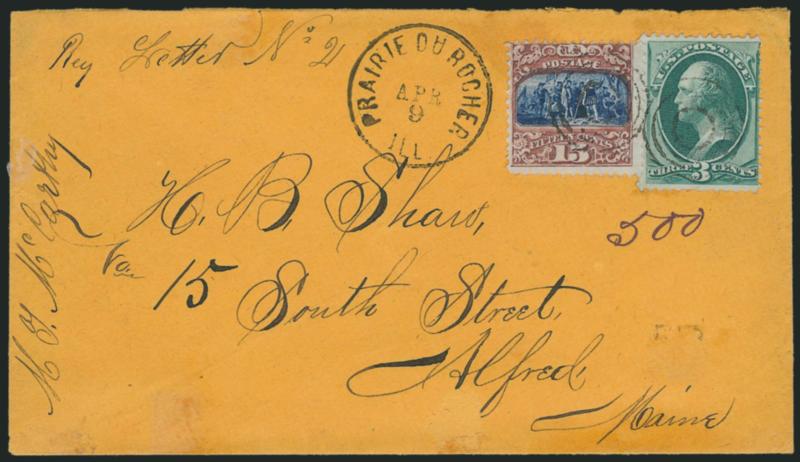 Reg Letter No 21
PRAIRIE DU ROCHER
APR
9
ILL.
U.S.
POSTAGE
FIFTEEN CENTS
15
U.S. POSTAGE
THREE 3 CENTS
500
H. B. Shaw,
No 15 South Street,
Alfred,
Maine
M. F. McCarthy